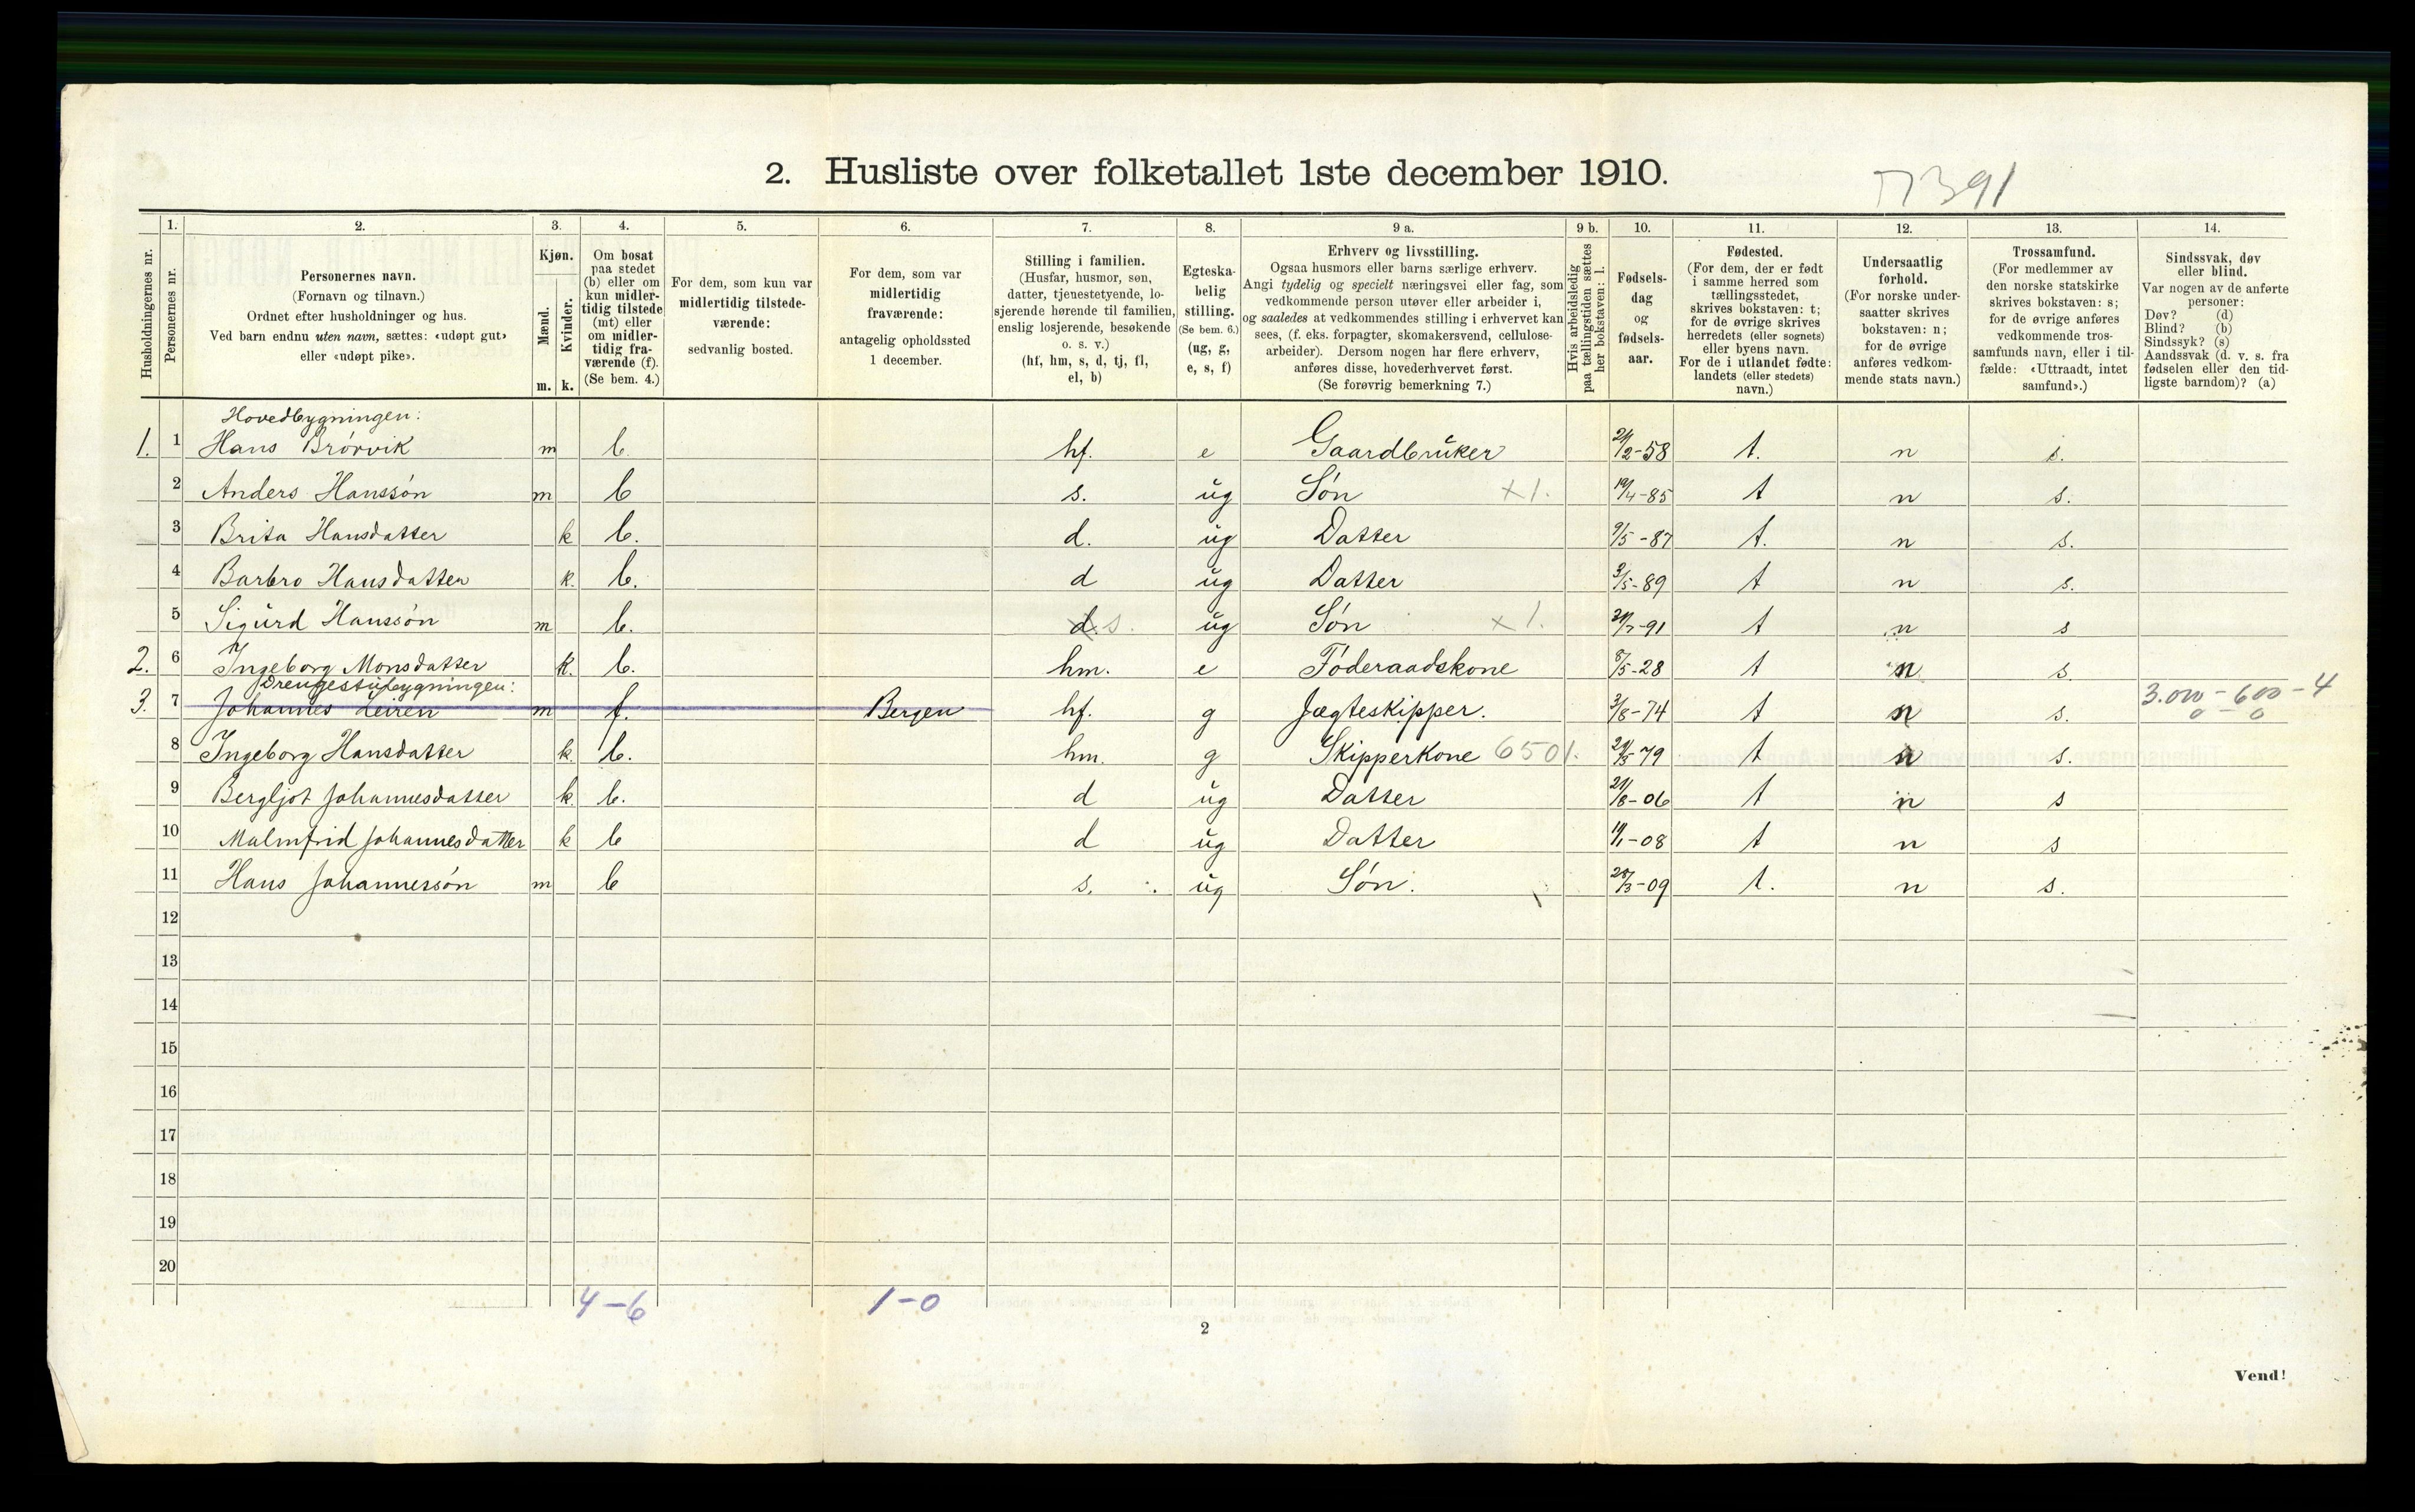 2. Husliste over folketallet 1ste december 1910.
Husholdningernes nr.
1. Personernes nr.
2. Personernes navn. (Fornavn og tilnavn.) Ordnet efter husholdninger og hus. Ved barn endnu uten navn, sættes: «udøpt gut» eller «udøpt pike».
3. Kjøn. Mænd. m. Kvinder. k.
4. Om bosat paa stedet (b) eller om kun midlertidig tilstede (mt) eller om midlertidig fraværende (f). (Se bem. 4.)
5. For dem, som kun var midlertidig tilstedeværende: sedvanlig bosted.
6. For dem, som var midlertidig fraværende: antagelig opholdssted 1 december.
7. Stilling i familien. (Husfar, husmor, søn, datter, tjenestetyende, losjerende hørende til familien, enslig losjerende, besøkende o. s. v.) (hf, hm, s, d, tj, fl, el, b)
8. Egteskabelig stilling. (Se bem. 6.) (ug, g, e, s, f)
9 a. Erhverv og livsstilling. Ogsaa husmors eller barns særlige erhverv. Angi tydelig og specielt næringsvei eller fag, som vedkommende person utøver eller arbeider i, og saaledes at vedkommendes stilling i erhvervet kan sees, (f. eks. forpagter, skomakersvend, cellulosearbeider). Dersom nogen har flere erhverv, anføres disse, hovederhvervet først. (Se forøvrig bemerkning 7.)
9 b. Hvis arbeidsledig paa tællingstiden sættes her bokstaven: l.
10. Fødselsdag og fødselsaar.
11. Fødested. (For dem, der er født i samme herred som tællingsstedet, skrives bokstaven: t; for de øvrige skrives herredets (eller sognets) eller byens navn. For de i utlandet fødte: landets (eller stedets) navn.)
12. Undersaatlig forhold. (For norske undersaatter skrives bokstaven: n; for de øvrige anføres vedkommende stats navn.)
13. Trossamfund. (For medlemmer av den norske statskirke skrives bokstaven: s; for de øvrige anføres vedkommende trossamfunds navn, eller i tilfælde: «Uttraadt, intet samfund».)
14. Sindssvak, døv eller blind. Var nogen av de anførte personer: Døv? (d) Blind? (b) Sindssyk? (s) Aandssvak (d. v. s. fra fødselen eller den tidligste barndom)? (a)
Hovedbygningen:
1. 1 Hans Brørvik m b. hf. e Gaardbruker 2/2-58 t. n s.
2 Anders Hanssøn m b s. ug Søn x 1. 19/4-85 t n s.
3 Brita Hansdatter k b. d. ug Datter 9/5-87 t. n s.
4 Barbro Hansdatter k. b. d ug Datter 3/5-89 t n s.
5 Sigurd Hanssøn m b. d. s. ug Søn x 1. -91 t n s
2. 6 Ingeborg Monsdatter k. b. hm. e Føderaadskone 8/5-28 t n s.
Drengestubygningen:
3. 7 Johannes Leiren m f. Bergen hf. g Jægteskipper. 3/8-74 t n s. 3.000-600-4
0-0
8 Ingeborg Hansdatter k. b. hm. g Skipperkone 6501. 79 t n s.
9 Bergljot Johannesdatter k. b. d ug Datter 21/8-06 t n s
10 Malmfrid Johannesdatter k b d ug Datter -08 t n s
11 Hans Johannessøn m b s. ug Søn. 20/3-09 t. n s.
12
13
14
15
16
17
18
19
20
4-6 1-0
2
Vend!